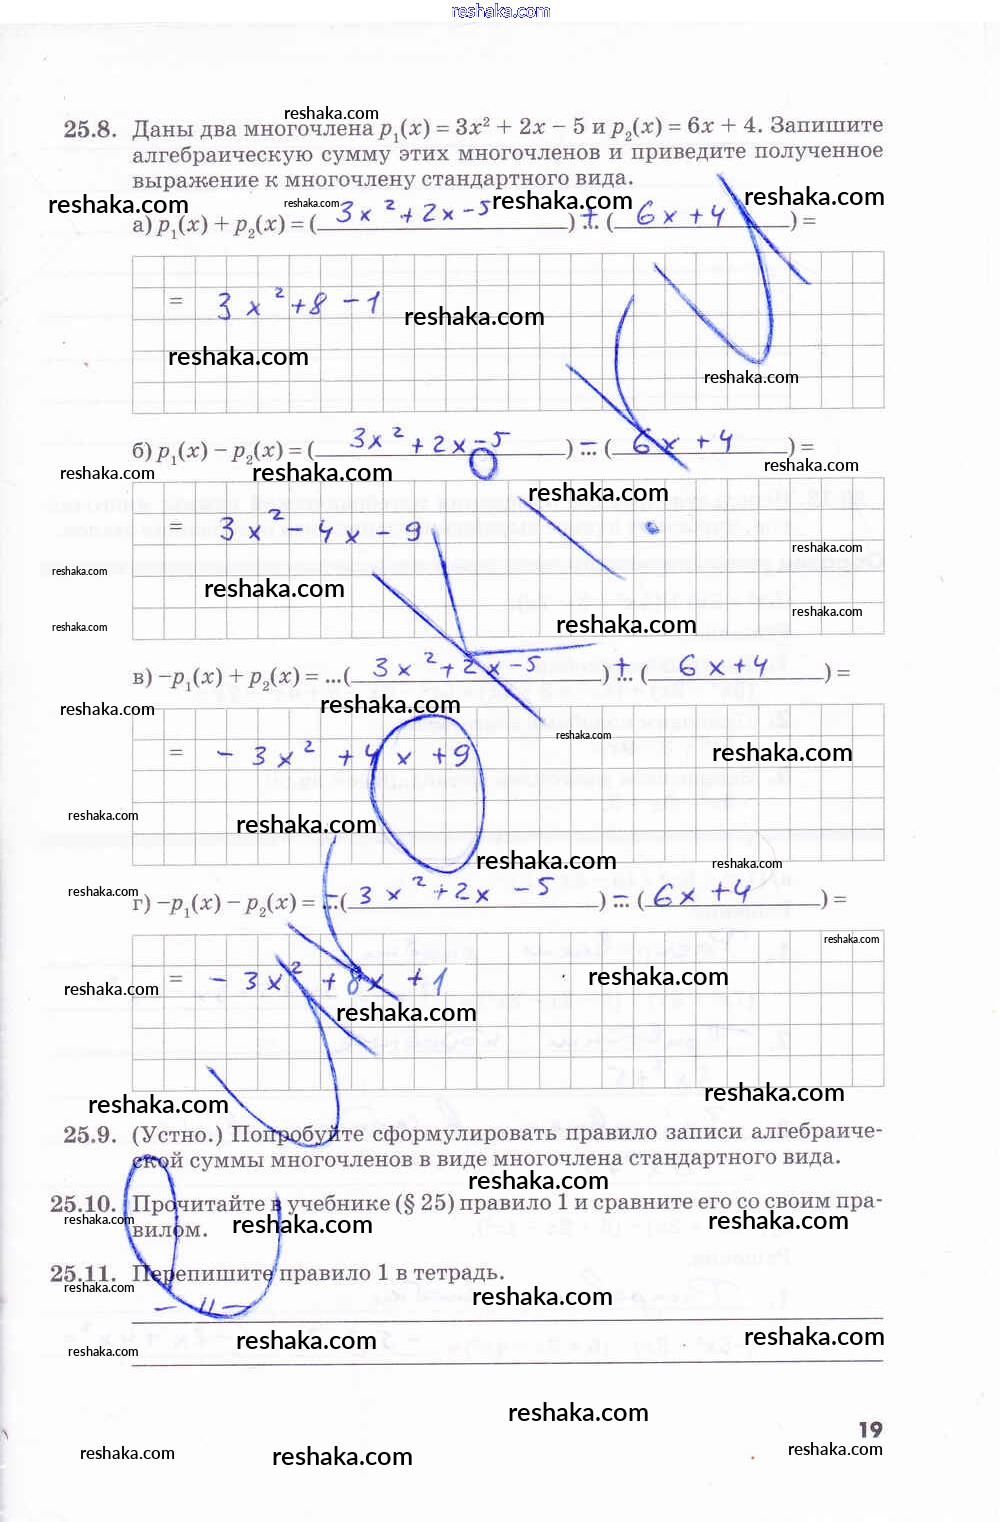 reshaka.com
reshaka.com
25.8. Даны два многочлена p₁(x) = 3x² + 2x − 5 и p₂(x) = 6x + 4. Запишите
алгебраическую сумму этих многочленов и приведите полученное
выражение к многочлену стандартного вида.
reshaka.com reshaka.com reshaka.com reshaka.com
а) p₁(x) + p₂(x) = ( 3x² + 2x − 5 ) + ( 6x + 4 ) =
= 3x² + 8 − 1
reshaka.com
reshaka.com
reshaka.com
б) p₁(x) − p₂(x) = ( 3x² + 2x − 5 ) − ... ( 6x + 4 ) =
reshaka.com reshaka.com reshaka.com
reshaka.com
= 3x² − 4x − 9
reshaka.com
reshaka.com
reshaka.com
reshaka.com
reshaka.com reshaka.com
в) −p₁(x) + p₂(x) = ...( 3x² + 2x − 5 ) + ... ( 6x + 4 ) =
reshaka.com reshaka.com
reshaka.com
= − 3x² + 4x + 9
reshaka.com
reshaka.com
reshaka.com
reshaka.com reshaka.com
reshaka.com
г) −p₁(x) − p₂(x) = − ...( 3x² + 2x − 5 ) − ... ( 6x + 4 ) =
reshaka.com
= − 3x² + 8x + 1
reshaka.com
reshaka.com
reshaka.com
reshaka.com
reshaka.com
25.9. (Устно.) Попробуйте сформулировать правило записи алгебраиче-
ской суммы многочленов в виде многочлена стандартного вида.
reshaka.com
25.10. Прочитайте в учебнике (§ 25) правило 1 и сравните его со своим пра-
вилом.
reshaka.com reshaka.com reshaka.com
25.11. Перепишите правило 1 в тетрадь.
reshaka.com reshaka.com
− 11 −
reshaka.com reshaka.com
reshaka.com
reshaka.com
19
reshaka.com reshaka.com reshaka.com